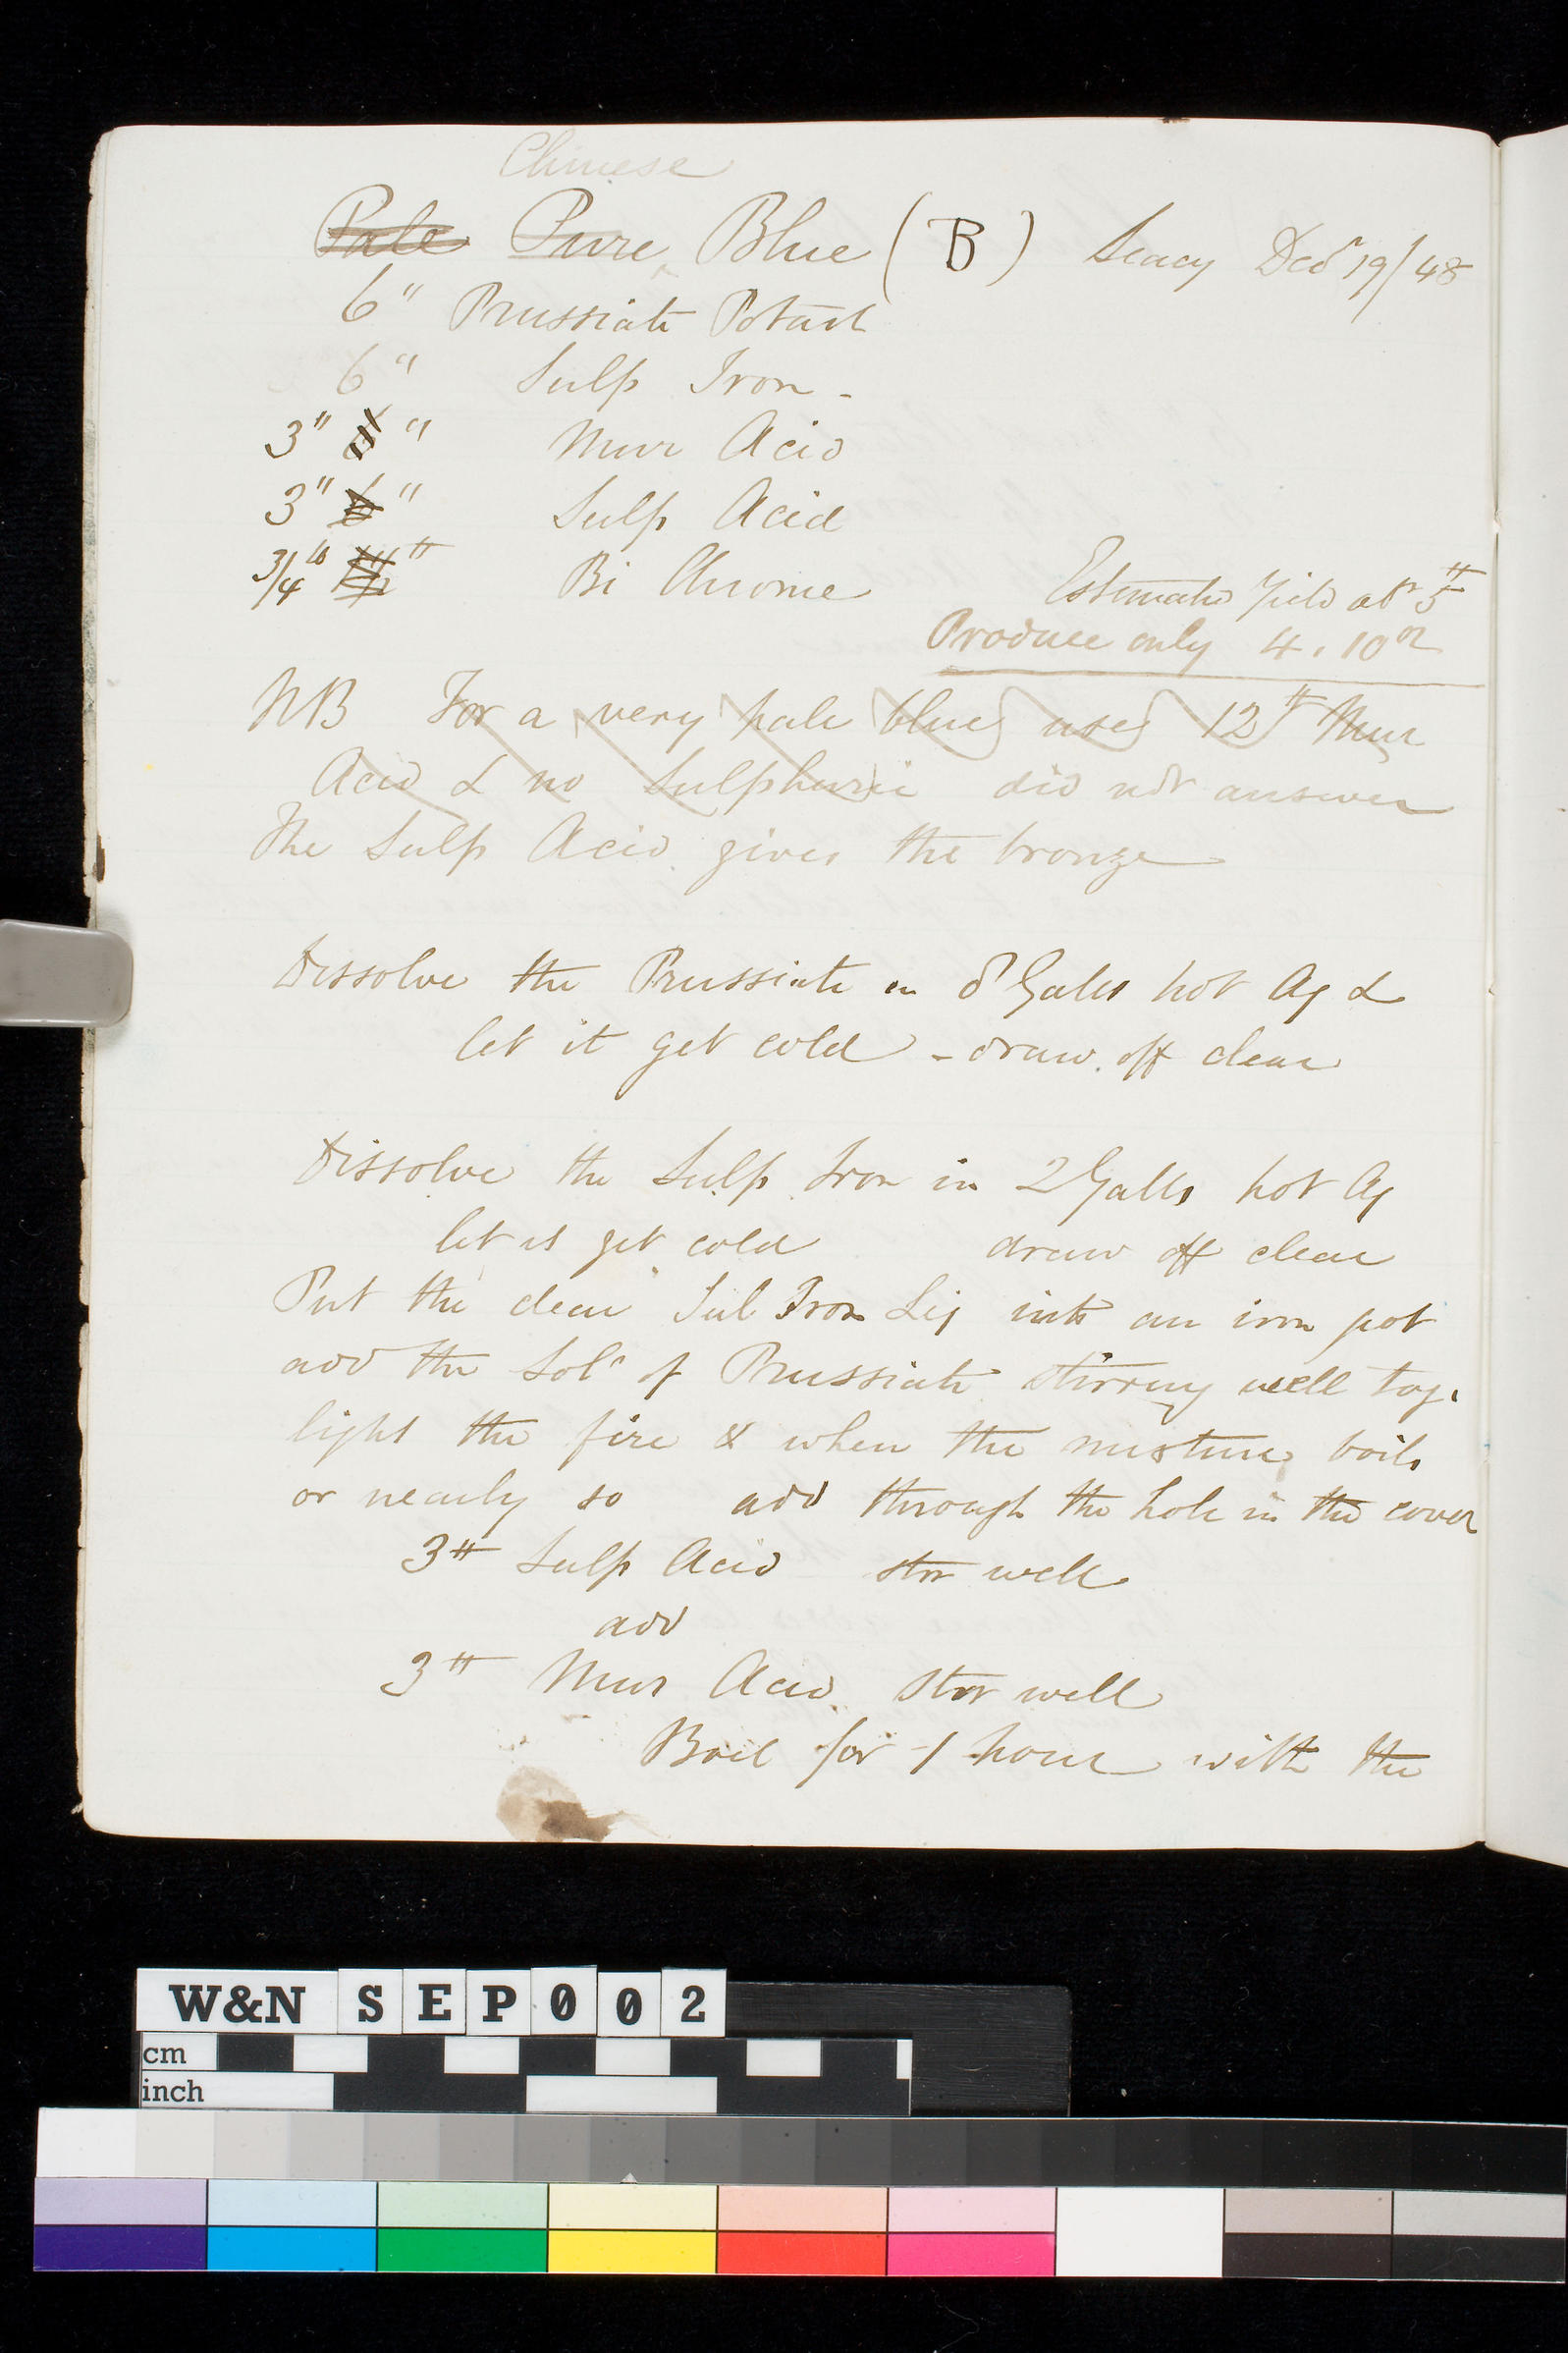 Chinese
Pale Pure Blue (B) Decr 19/48
6" Prussiate Potash
6" Sulp Iron -
3" " Mur Acid
3" 6 " Sulp Acid
3/4 lb " Bi Chrome
Estimated Yield abt 5 #
Produce only 4.10 oz
NB For a very pale blue used 12 # Mur
Acid & no Sulphuric did not answer
The Sulp Acid gives the bronze
Dissolve the Prussiate in 8 Galls hot Aq &
let it get cold - draw off clear
Dissolve the Sulp Iron in 2 Galls hot Aq
let it get cold draw off clear
Put the clear Sul Iron Liq into an iron pot
add the Soln of Prussiate stirring well tog.
light the fire & when the mixture boils
or nearly so add through the hole in the cover
3 # Sulp Acid stir well
add
3 # Mur Acid stir well
Boil for 1 hour with the
W&N SEP002
cm
inch